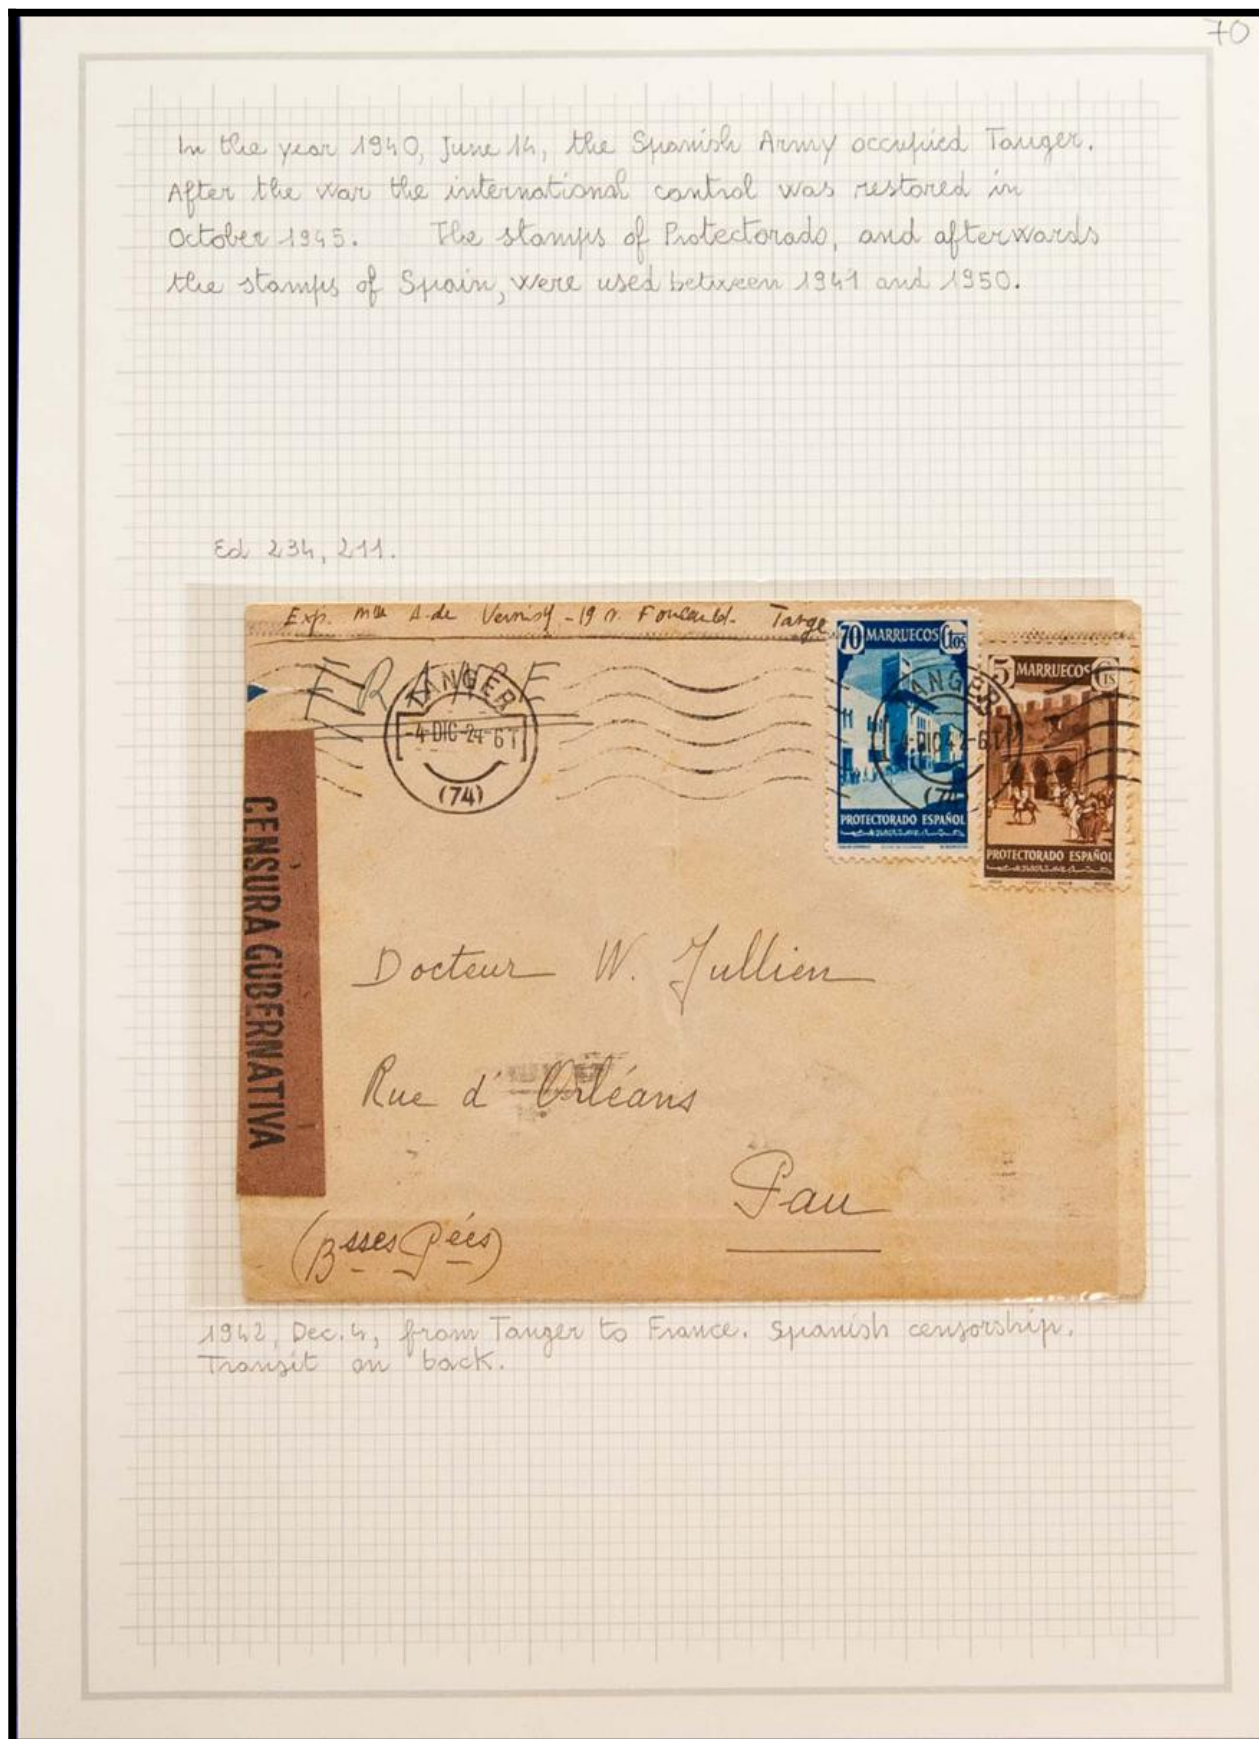 70
In the year 1940, June 14, the Spanish Army occupied Tanger.
After the war the international control was restored in
October 1945. The stamps of Protectorado, and afterwards
the stamps of Spain, were used between 1941 and 1950.
Ed 234, 211.
Exp. Mlle A. de - 19 r. Foucauld. Tange
FRANCE
70 MARRUECOS Ctos
5 MARRUECOS Cts
TANGER
-4-DIC-24-6T
(74)
TANGER
4-DIC 42-6T
(74
PROTECTORADO ESPAÑOL
PROTECTORADO ESPAÑOL
CENSURA GUBERNATIVA
Docteur W. Jullien
Rue d'Orléans
Pau
(Bsses Pées)
1942, Dec. 4, from Tanger to France. Spanish censorship.
Transit on back.